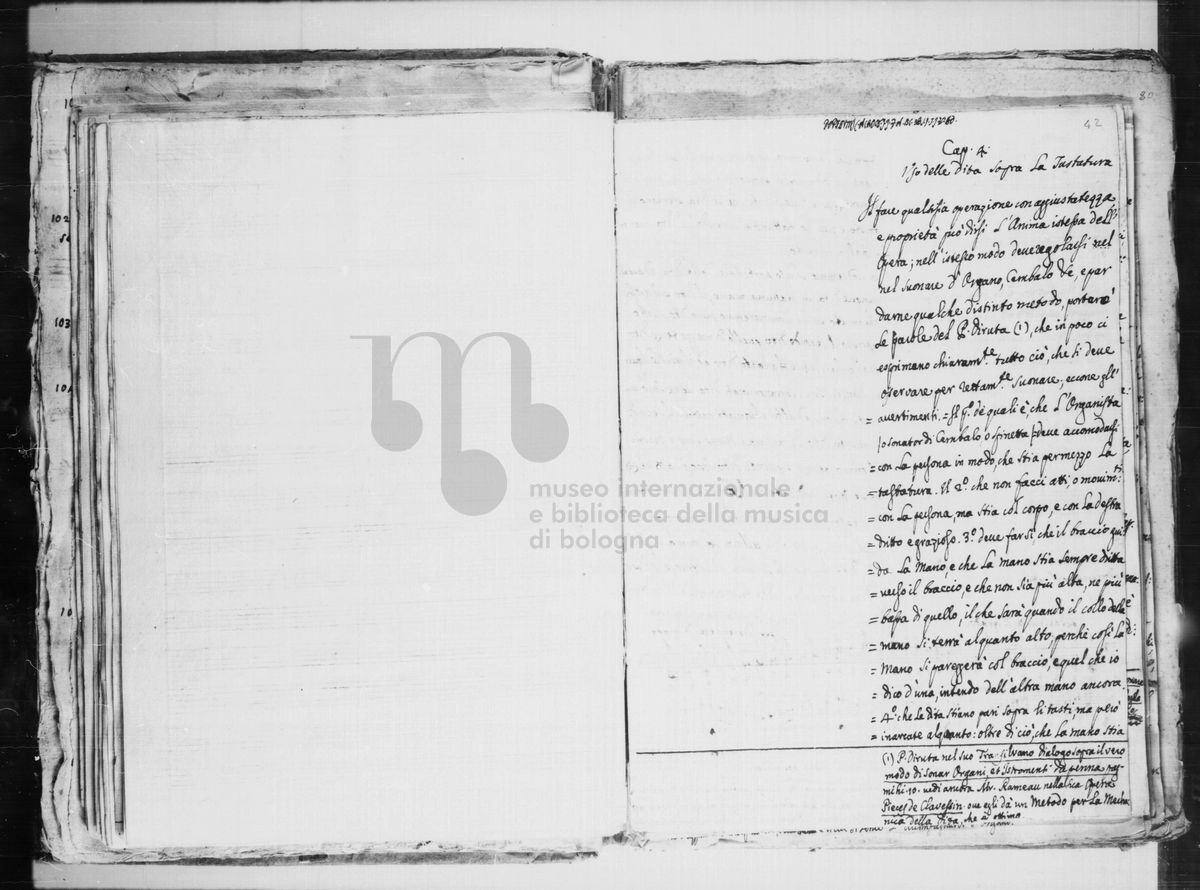 80
42
Cap. 4.
Uso delle dita sopra La Tastatura
Il fare qualsisia operazione con aggiustatezza
e proprietà può dirsi L'Anima istessa dell'
Opera; nell'istesso modo deve regolarsi nel
nel suonare d'Organo, Cembalo &c, e per
darne qualche distinto metodo, porterò
Le parole del P. Diruta (1), che in poco ci
esprimano chiaram.te tutto ciò, che si deve
osservare per rettam.te suonare; eccone gl'
= avertimenti. = Il p.o de quali è, che L'Organista
/o sonator di Cembalo o spinetta/ deve accomodarsi
= con La persona in modo, che stia per mezzo La
= tastatura. Il 2.o che non facci atti, o movim.ti
= con La persona, ma stia col corpo, e con La testa
= dritto e grazioso. 3.o deve far sì che il braccio gui
= da La Mano, e che La mano stia sempre dritta
= verso il braccio, e che non sia più alta, ne più
= bassa di quello, il che sarà quando il collo della
= mano si terrà alquanto alto, perchè così La
= Mano si pareggerà col braccio, e quel che io
= dico d'una, intendo dell'altra mano ancora.
= 4.o che Le dita stiano pari sopra li tasti, ma però
= inarcate alquanto: oltre di ciò, che La mano stia
(1) P. Diruta nel suo Transilvano dialogo sopra il vero
modo di sonar Organi, et Istromenti da penna pag.
mihi 10. vedi ancora Mr. Rameau nella sua Opera
Pieces de Clavessin. ove egli dà un Metodo per La Mecha
nica della Dita, che è ottimo
102
103
10
museo internazionale
e biblioteca della musica
di bologna